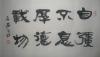 自彊
不息
厚德
載物